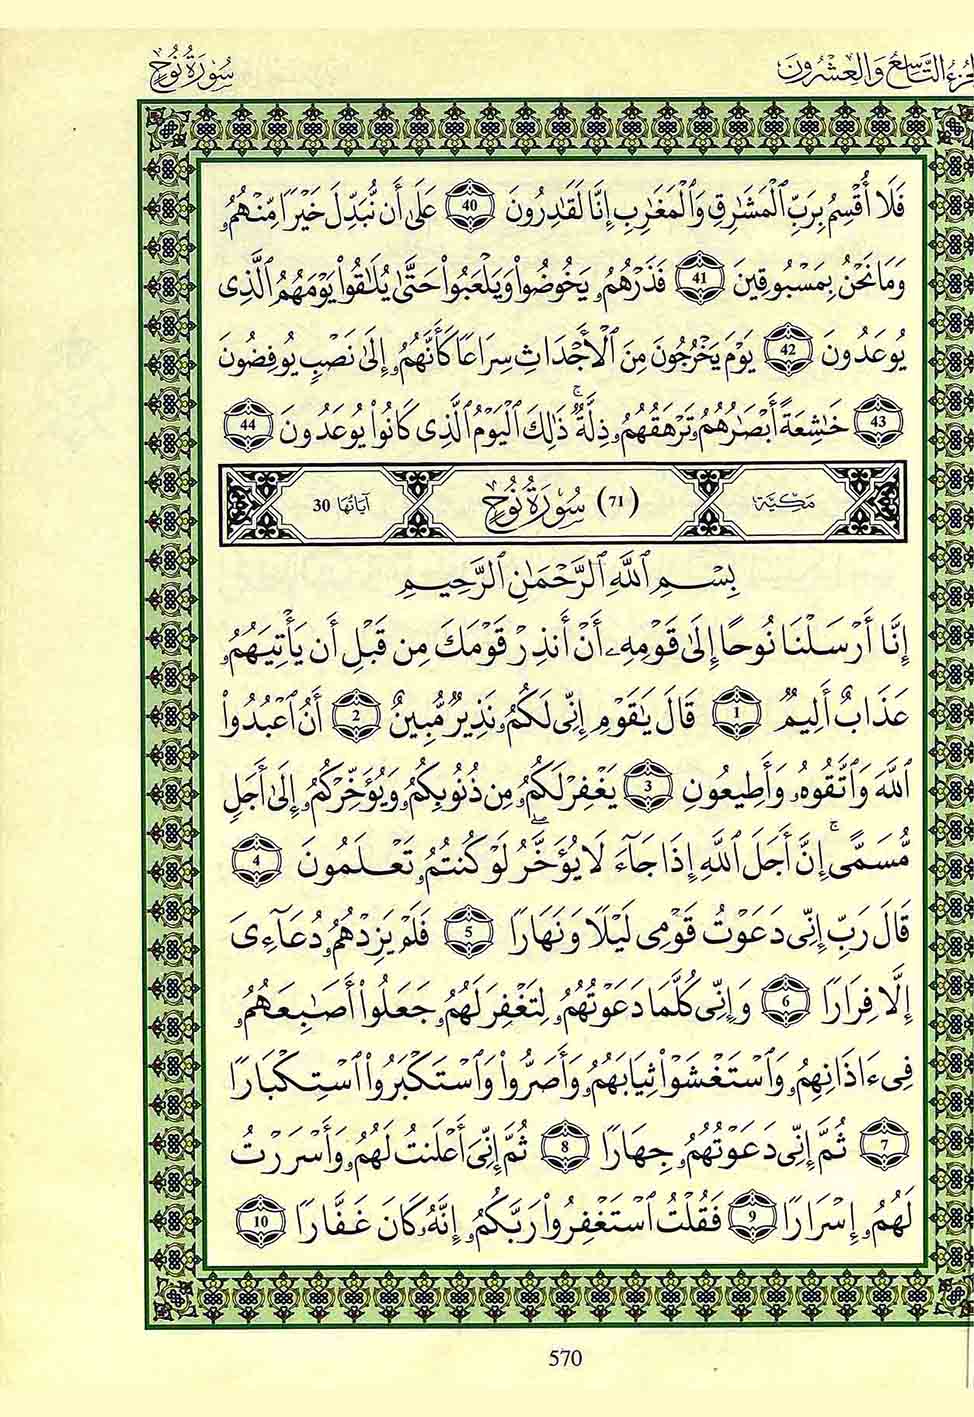 سُورَةُ نُوحٍ
الجُزءُ التَّاسِعُ وَالعِشْرُونَ
فَلَا أُقْسِمُ بِرَبِّ اِ۬لْمَشَٰرِقِ وَالْمَغَٰرِبِ إِنَّا لَقَٰدِرُونَ 40 عَلَىٰ أَن نُّبَدِّلَ خَيْرًا مِّنْهُمُۥ
وَمَا نَحْنُ بِمَسْبُوقِينَ 41 فَذَرْهُمُۥ يَخُوضُواْ وَيَلْعَبُواْ حَتَّىٰ يُلَٰقُواْ يَوْمَهُمُ الَّذِى
يُوعَدُونَ 42 يَوْمَ يَخْرُجُونَ مِنَ اَ۬لْأَجْدَاثِ سِرَاعًا كَأَنَّهُمُۥ إِلَىٰ نَصْبٍ يُوفِضُونَ
43 خَٰشِعَةً أَبْصَٰرُهُمُۥ تَرْهَقُهُمُۥ ذِلَّةٌۚ ذَٰلِكَ اَ۬لْيَوْمُ اُ۬لَّذِى كَانُواْ يُوعَدُونَ 44
مَكِّيَّة (71) سُورَةُ نُوحٍ آيَاتُهَا 30
بِسْمِ اِ۬للَّهِ اِ۬لرَّحْمَٰنِ اِ۬لرَّحِيمِ
إِنَّا أَرْسَلْنَا نُوحًا إِلَىٰ قَوْمِهِۦ أَنْ أَنذِرْ قَوْمَكَ مِن قَبْلِ أَن يَأْتِيَهُمُۥ
عَذَابٌ أَلِيمٌ 1 قَالَ يَٰقَوْمِ إِنِّى لَكُمُۥ نَذِيرٌ مُّبِينٌ 2 أَنُ اُ۟عْبُدُواْ
اُ۬للَّهَ وَاتَّقُوهُۥ وَأَطِيعُونِ 3 يَغْفِرْ لَكُمُۥ مِن ذُنُوبِكُمُۥ وَيُؤَخِّرْكُمُۥ إِلَىٰ أَجَلٍ
مُّسَمًّىۚ إِنَّ أَجَلَ اَ۬للَّهِ إِذَا جَآءَ لَا يُؤَخَّرُۖ لَوْ كُنتُمُۥ تَعْلَمُونَ 4
قَالَ رَبِّ إِنِّى دَعَوْتُ قَوْمِى لَيْلًا وَنَهَارًا 5 فَلَمْ يَزِدْهُمُۥ دُعَآءِىَ
إِلَّا فِرَارًا 6 وَإِنِّى كُلَّمَا دَعَوْتُهُمُۥ لِتَغْفِرَ لَهُمُۥ جَعَلُواْ أَصَٰبِعَهُمُۥ
فِى ءَاذَانِهِمُۥ وَاسْتَغْشَوْاْ ثِيَابَهُمُۥ وَأَصَرُّواْ وَاسْتَكْبَرُواْ اُ۪سْتِكْبَارًا
7 ثُمَّ إِنِّى دَعَوْتُهُمُۥ جِهَارًا 8 ثُمَّ إِنِّى أَعْلَنتُ لَهُمُۥ وَأَسْرَرْتُ
لَهُمُۥ إِسْرَارًا 9 فَقُلْتُ اُ۪سْتَغْفِرُواْ رَبَّكُمُۥ إِنَّهُۥ كَانَ غَفَّارًا 10
570